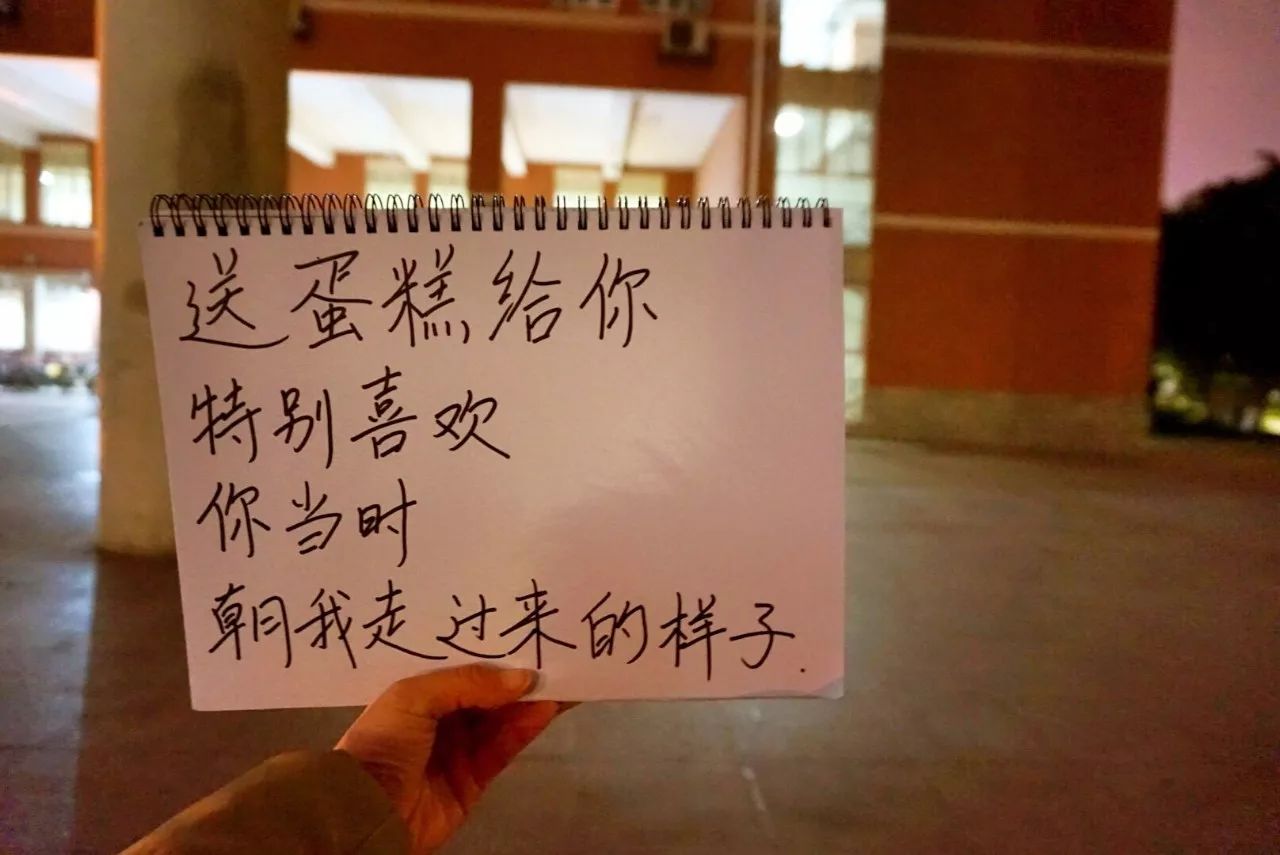 送蛋糕给你
特别喜欢
你当时
朝我走过来的样子.